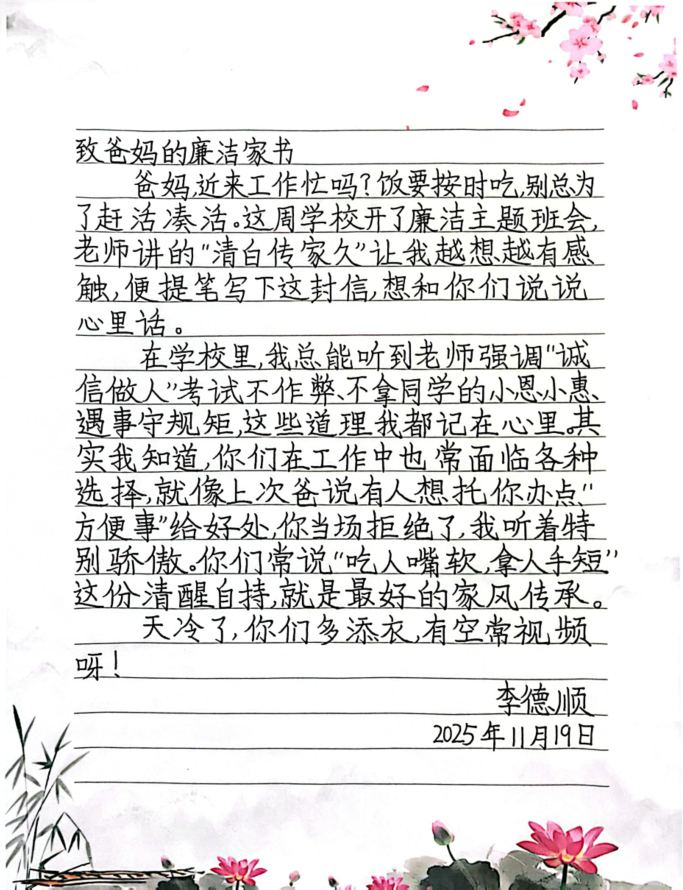 致爸妈的廉洁家书
爸妈,近来工作忙吗?饭要按时吃,别总为
了赶活凑活。这周学校开了廉洁主题班会,
老师讲的“清白传家久”让我越想越有感
触,便提笔写下这封信,想和你们说说
心里话。
在学校里,我总能听到老师强调“诚
信做人”考试不作弊、不拿同学的小恩小惠、
遇事守规矩,这些道理我都记在心里。其
实我知道,你们在工作中也常面临各种
选择,就像上次爸说有人想托你办点“
方便事”给好处,你当场拒绝了,我听着特
别骄傲。你们常说“吃人嘴软,拿人手短”
这份清醒自持,就是最好的家风传承。
天冷了,你们多添衣,有空常视频
呀!
李德顺
2025年11月19日